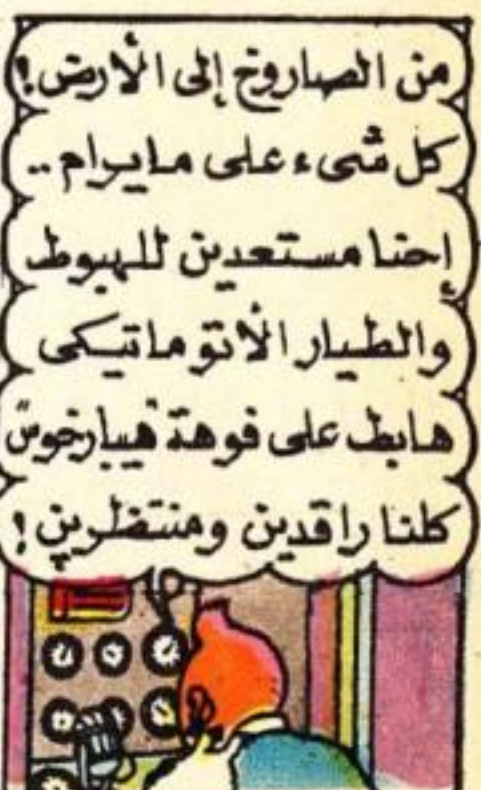 من الصاروخ إلى الأرض!
كل شىء على مايرام ..
إحنا مستعدين للهبوط
والطيار الأتوماتيكى
هابط على فوهة "هيبارخوس"
كلنا راقدين ومنتظرين!